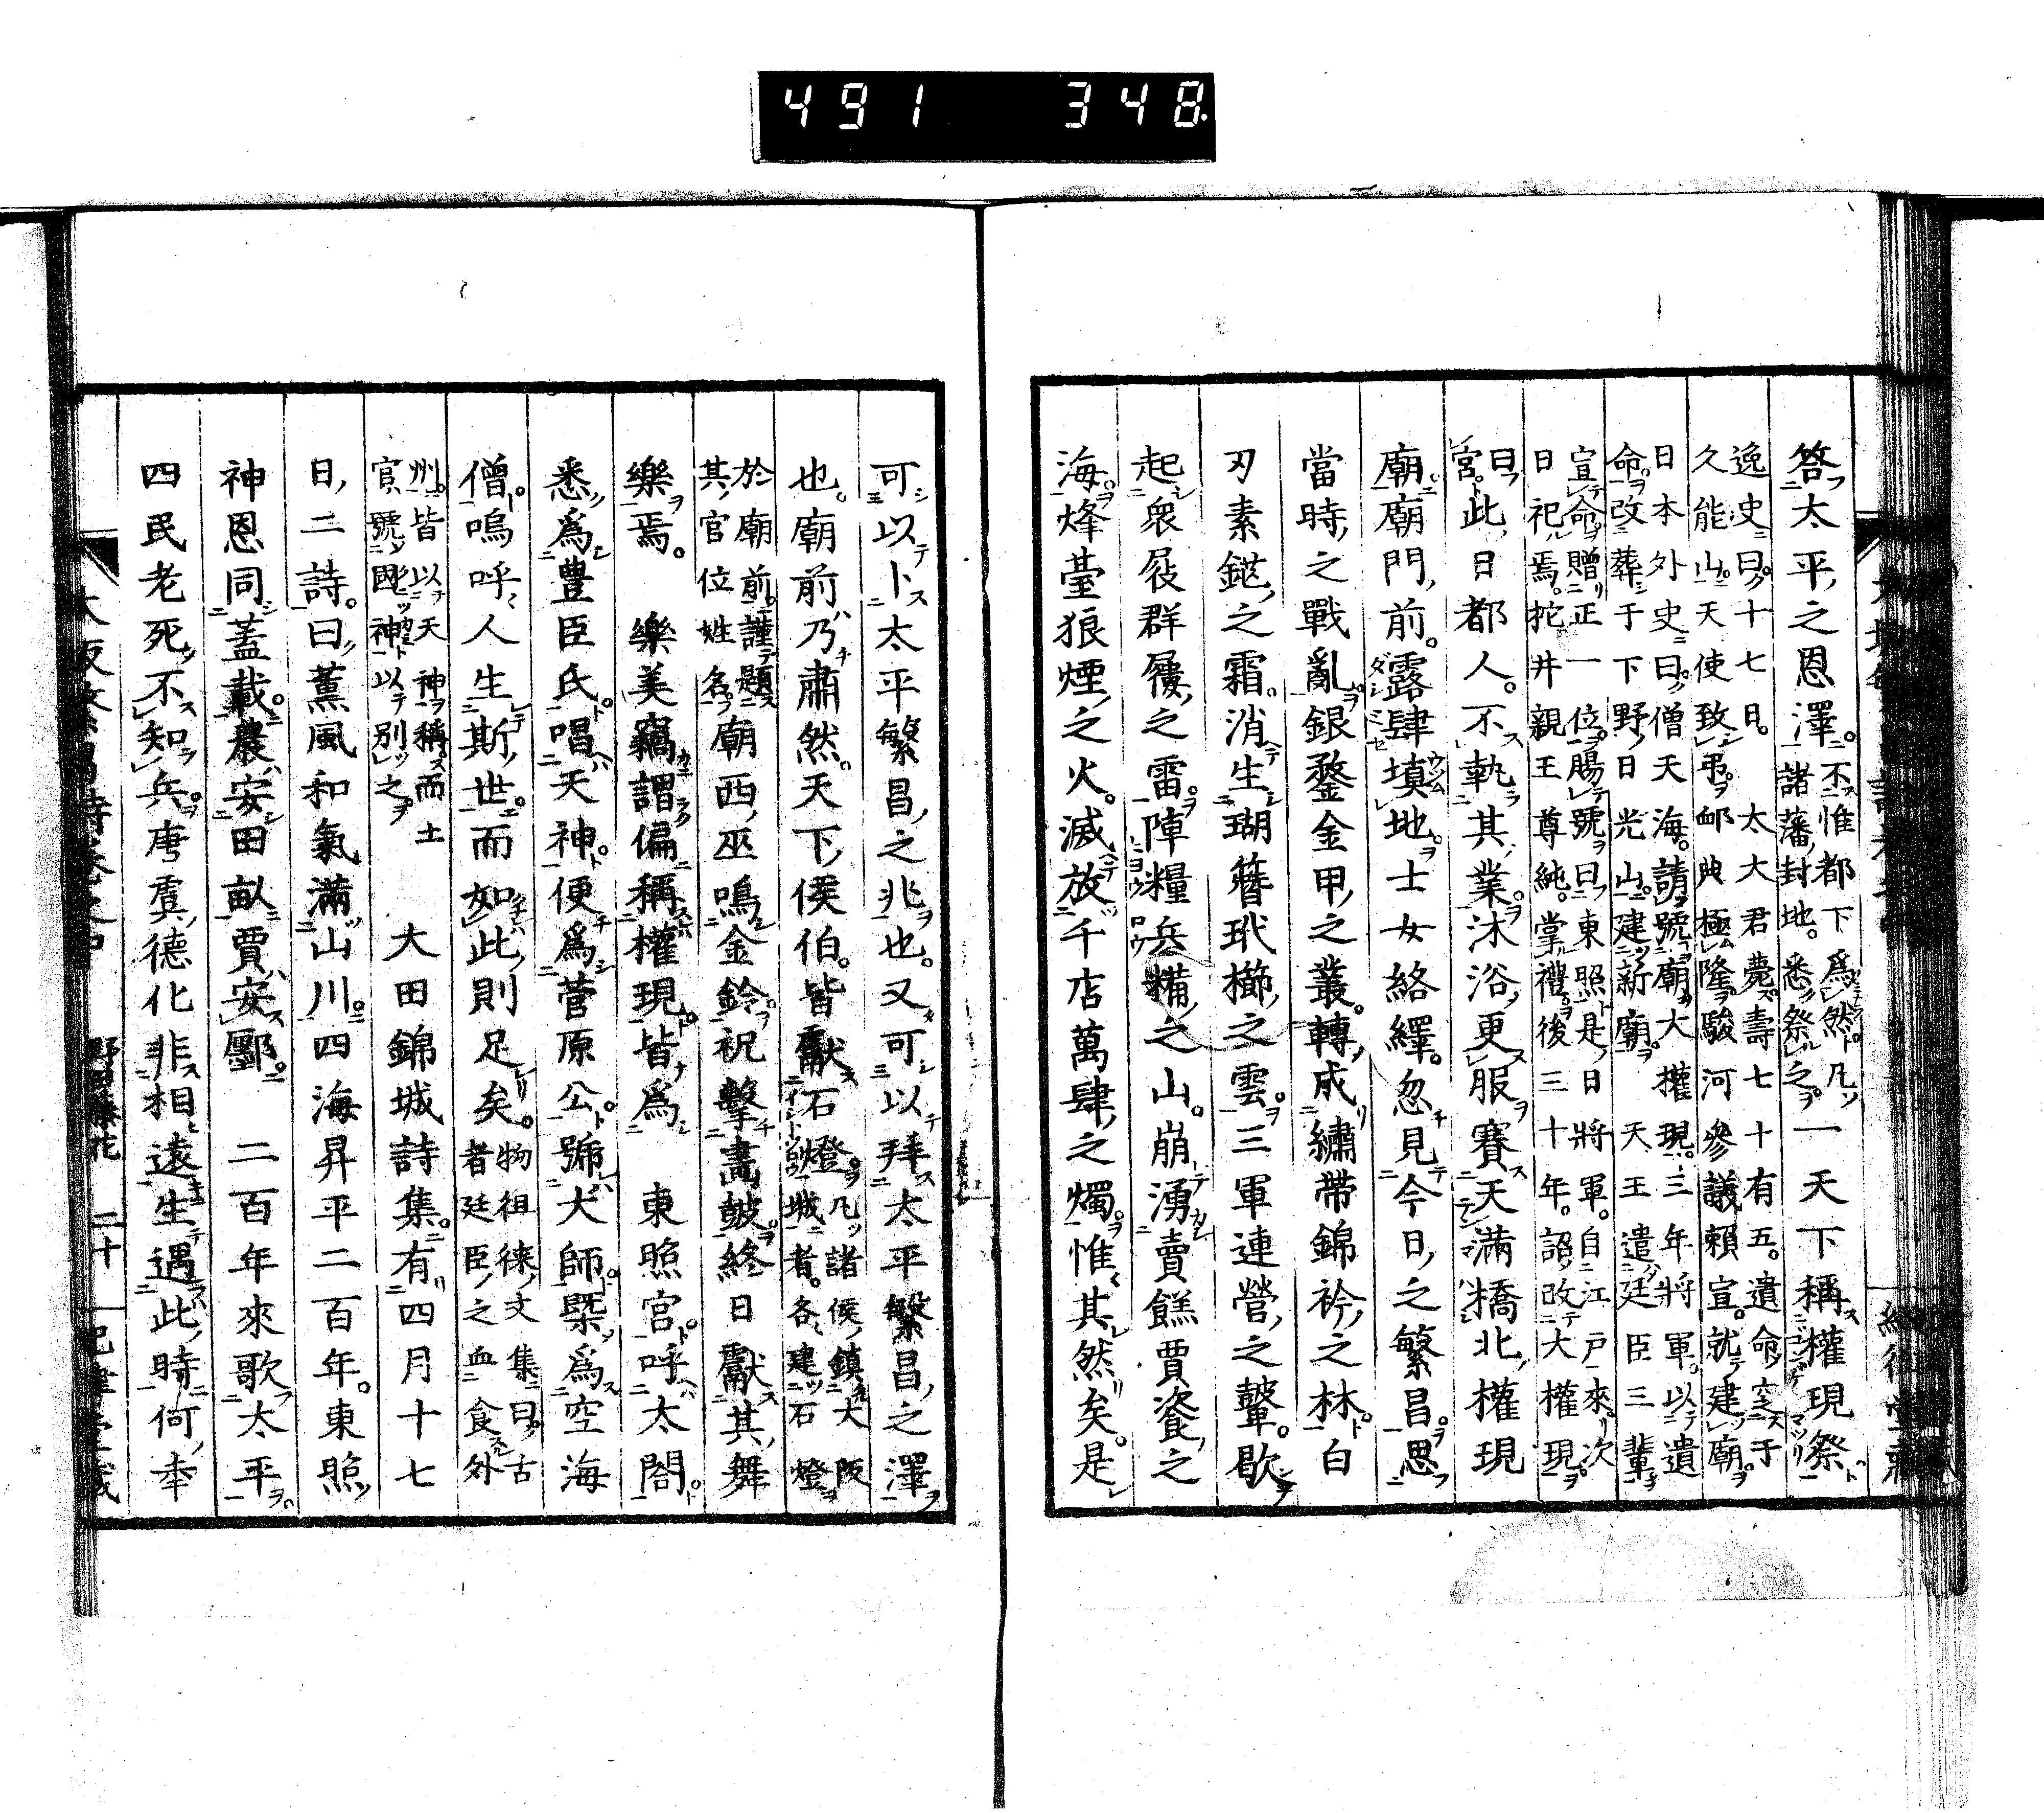 491 348
答太平之恩澤不惟都下爲然凡一天下稱權現祭
諸藩封地悉祭之
逸史曰十七日太大君薨壽七十有五遺命窆于
久能山天使致弔卹典極隆駿河參議賴宣就建廟
日本外史曰僧天海請號廟大權現三年將軍以遺
命改葬于下野日光山建新廟天王遣廷臣三輩
宣命贈正一位賜號曰東照是日將軍自江戶來次
日祀焉梶井親王尊純掌禮後三十年詔改大權現
曰宮此日都人不執其業沐浴更服賽天滿橋北權現
廟廟門前露肆塡地士女絡繹忽見今日之繁昌思
當時之戰亂銀鍪金甲之叢轉成繡帶錦衿之林白
刃素鋋之霜消生瑚簪玳櫛之雲三軍連營之鼙歇
起衆屐群屨之雷陣糧兵糒之山崩湧賣餻賈瓷之
海烽臺狼煙之火滅放千店萬肆之燭惟其然矣是
可以卜太平繁昌之兆也又可以拜太平繁昌之澤
也廟前乃肅然天下侯伯皆獻石燈凡諸侯鎮大阪
城者各建石燈
於廟前謹題
其官位姓名廟西巫鳴金鈴祝擊畵皷終日獻其舞
樂焉 樂美竊謂偏稱權現皆爲 東照宮呼太閤
悉爲豊臣氏唱天神便爲菅原公號大師槩爲空海
僧嗚呼人生斯世而如此則足矣物徂徠文集曰古
者廷臣之血食外
州皆以天神稱而土
官號國神以別之 大田錦城詩集有四月十七
日二詩曰薰風和氣滿山川四海昇平二百年東照
神恩同蓋載農安田畝賈安鄽 二百年來歌太平
四民老死不知兵唐虞德化非相遠生遇此時何幸
野田藤花 二十